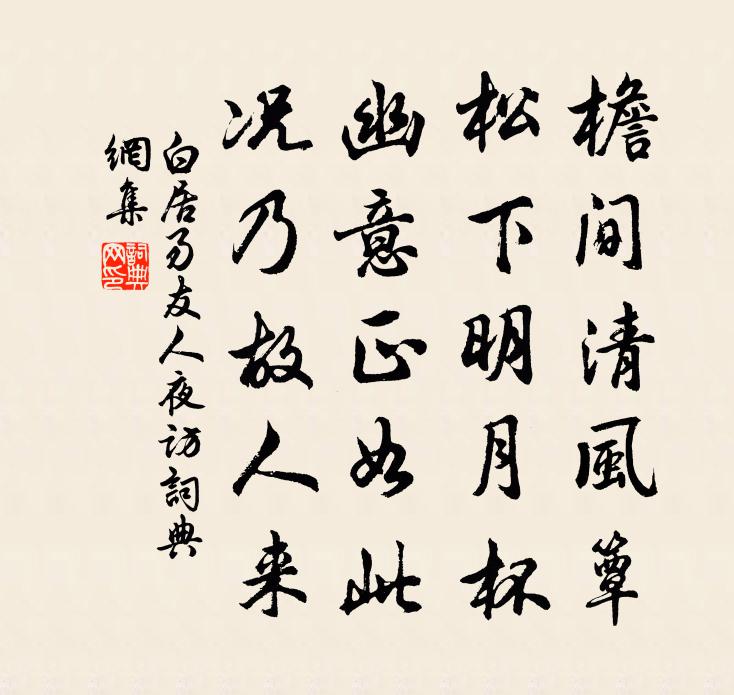 檐间清風簟
松下明月杯
幽意正如此
况乃故人来
白居易友人夜访詞典
網集
詞典網印